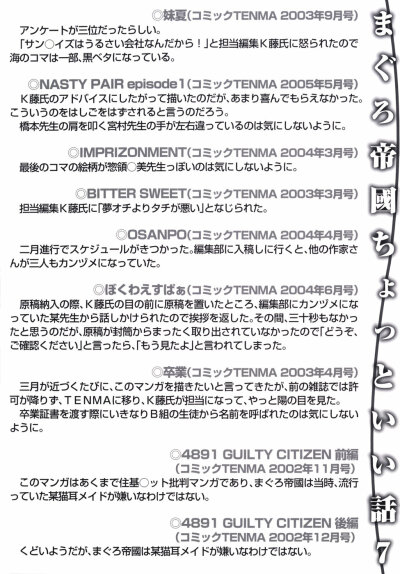 まぐろ帝國ちょっといい話7
◎妹夏(コミックTENMA 2003年9月号)
アンケートが三位だったらしい。
「サン○イズはうるさい会社なんだから!」と担当編集K藤氏に怒られたので
海のコマは一部、黒ベタになっている。
◎NASTY PAIR episode1(コミックTENMA 2005年5月号)
K藤氏のアドバイスにしたがって描いたのだが、あまり喜んでもらえなかった。
こういうのをはしごをはずされると言うのだろう。
橋本先生の肩を叩く宮村先生の手が左右違っているのは気にしないように。
◎IMPRIZONMENT(コミックTENMA 2004年3月号)
最後のコマの絵柄が惣領○美先生っぽいのは気にしないように。
◎BITTER SWEET(コミックTENMA 2003年3月号)
担当編集K藤氏に「夢オチよりタチが悪い」となじられた。
◎OSANPO(コミックTENMA 2004年4月号)
二月進行でスケジュールがきつかった。編集部に入稿しに行くと、他の作家さ
んが三人もカンヅメになっていた。
◎ぼくわえすぱぁ(コミックTENMA 2004年6月号)
原稿納入の際、K藤氏の目の前に原稿を置いたところ、編集部にカンヅメにな
っていた某先生から話しかけられたので挨拶を返した。その間、三十秒もなかっ
たと思うのだが、原稿が封筒からまったく取り出されていなかったので「どうぞ、
ご確認ください」と言ったら、「もう見たよ」と言われてしまった。
◎卒業(コミックTENMA 2003年4月号)
三月が近づくたびに、このマンガを描きたいと言ってきたが、前の雑誌では許
可が降りず、TENMAに移り、K藤氏が担当になって、やっと陽の目を見た。
卒業証書を渡す際にいきなりB組の生徒から名前を呼ばれたのは気にしない
ように。
◎4891 GUILTY CITIZEN 前編
(コミックTENMA 2002年11月号)
このマンガはあくまで住基○ット批判マンガであり、まぐろ帝國は当時、流行
っていた某猫耳メイドが嫌いなわけではない。
◎4891 GUILTY CITIZEN 後編
(コミックTENMA 2002年12月号)
くどいようだが、まぐろ帝國は某猫耳メイドが嫌いなわけではない。